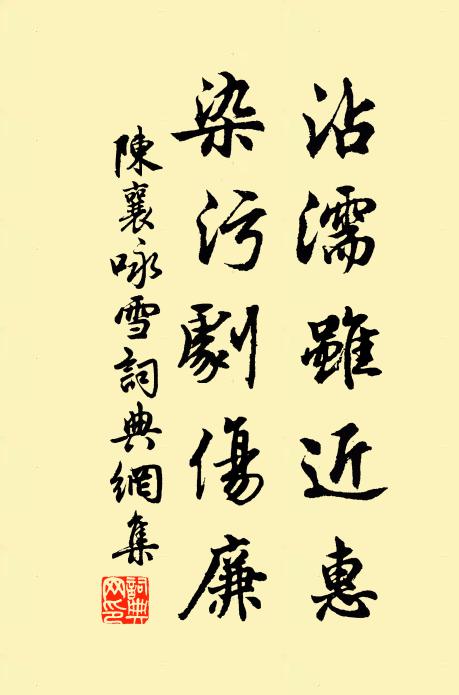 沾濡雖近惠
染污劇傷廉
陳襄咏雪詞典網集
詞典網印